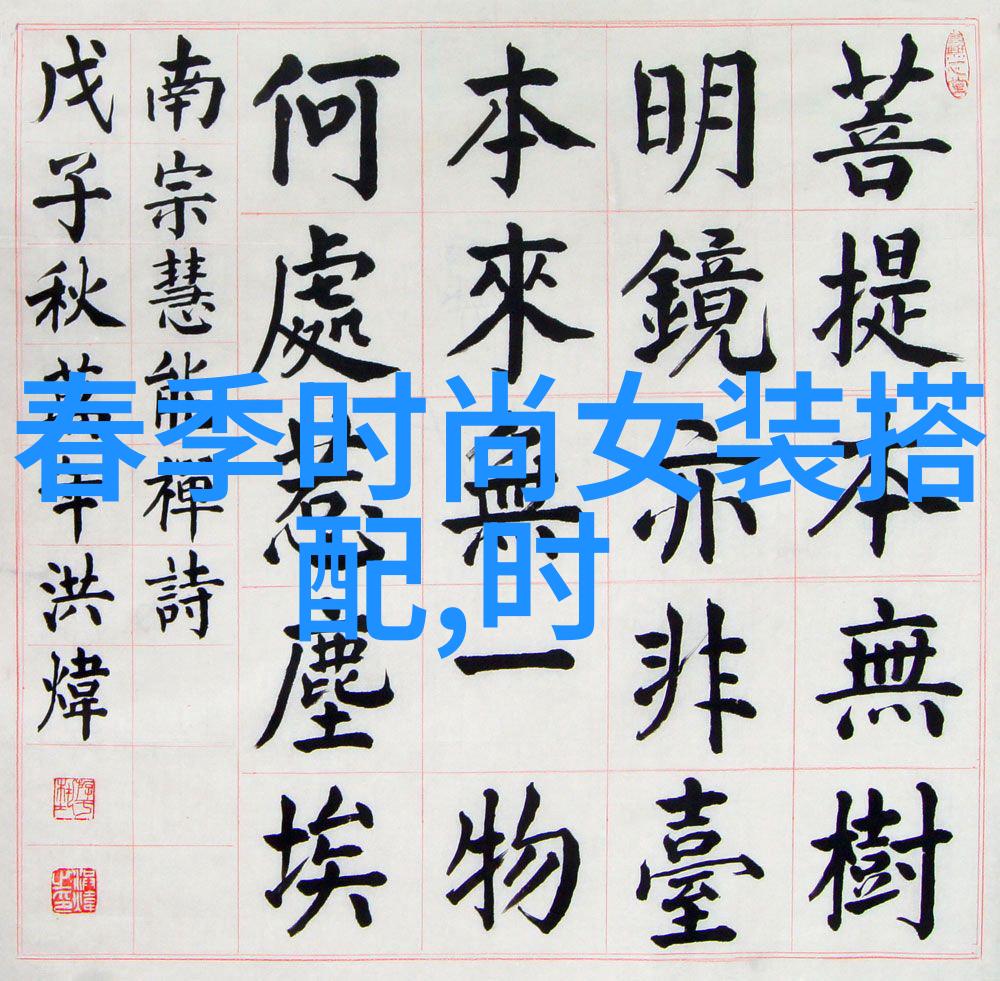 菩提本無樹
明鏡亦非臺
本來無一物
何處惹塵埃
南宗慧能禪詩
戊子秋 洪煒
春季时尚女装搭
配,时